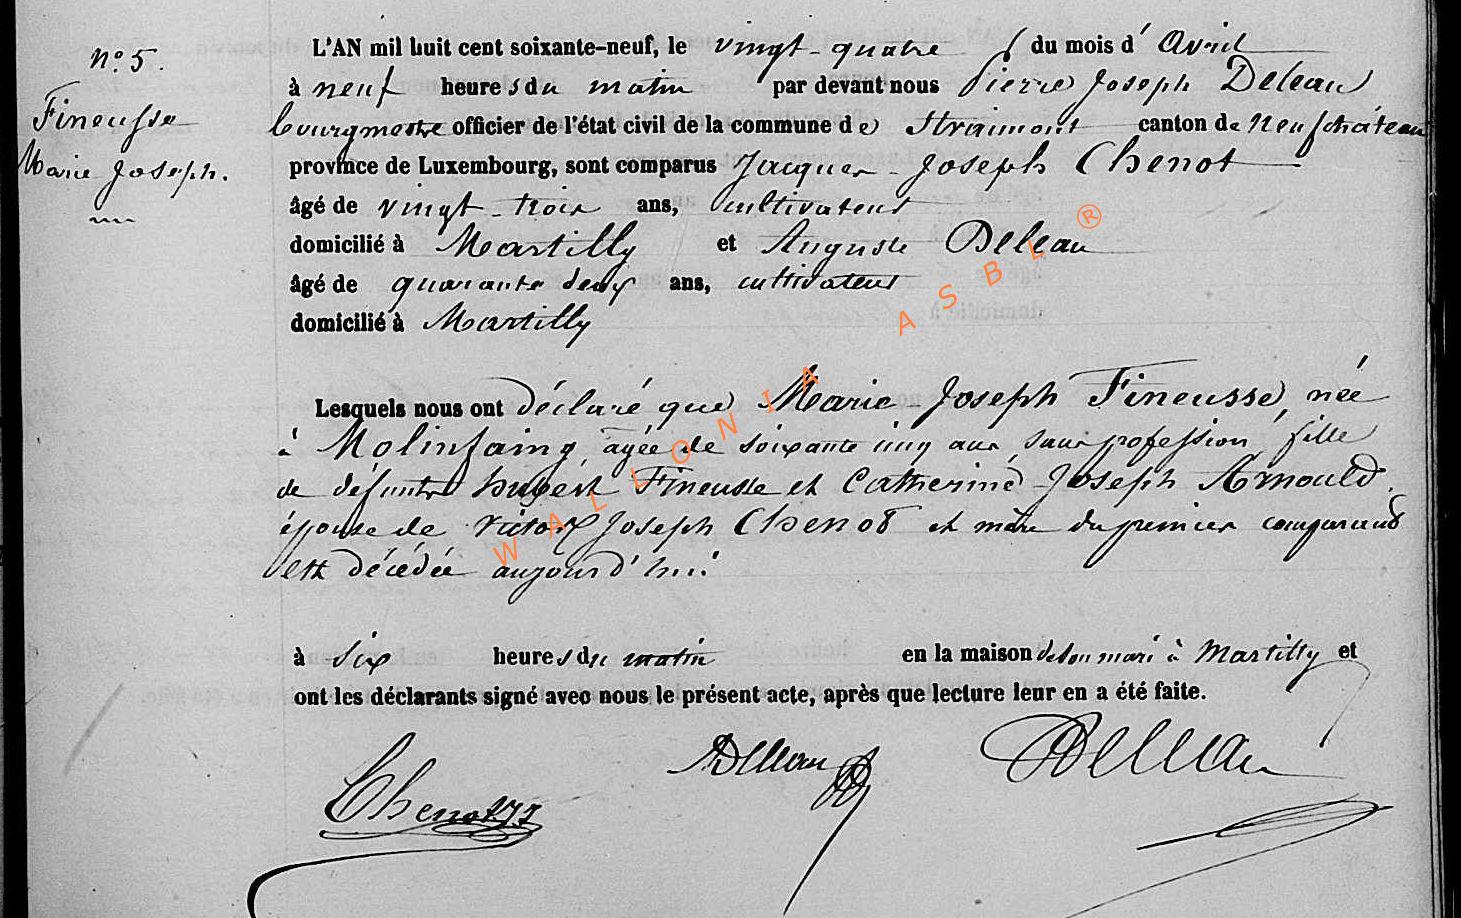 N° 5.
Fineusse
Marie Joseph.
L'AN mil huit cent soixante-neuf, le vingt-quatre du mois d'Avril
à neuf heures du matin par devant nous Pierre Joseph Deleau
bourgmestre officier de l'état civil de la commune de Straimont canton de Neufchâteau
province de Luxembourg, sont comparus Jacques-Joseph Chenot
âgé de vingt-trois ans, cultivateur
domicilié à Martilly et Auguste Deleau
âgé de quarante deux ans, cultivateur
domicilié à Martilly
Lesquels nous ont déclaré que Marie-Joseph Fineusse, née
à Molinfaing, agée de soixante cinq ans, sans profession, fille
de défunts hubert Fineusse et Catherine-Joseph Arnould,
épouse de Victor Joseph Chenot et mère du premier comparant
est décédée aujourd'hui
à six heures du matin en la maison de son mari à Martilly et
ont les déclarants signé avec nous le présent acte, après que lecture leur en a été faite.
Chenot JJ ADeleau Deleau
WALLONIA ASBL ®